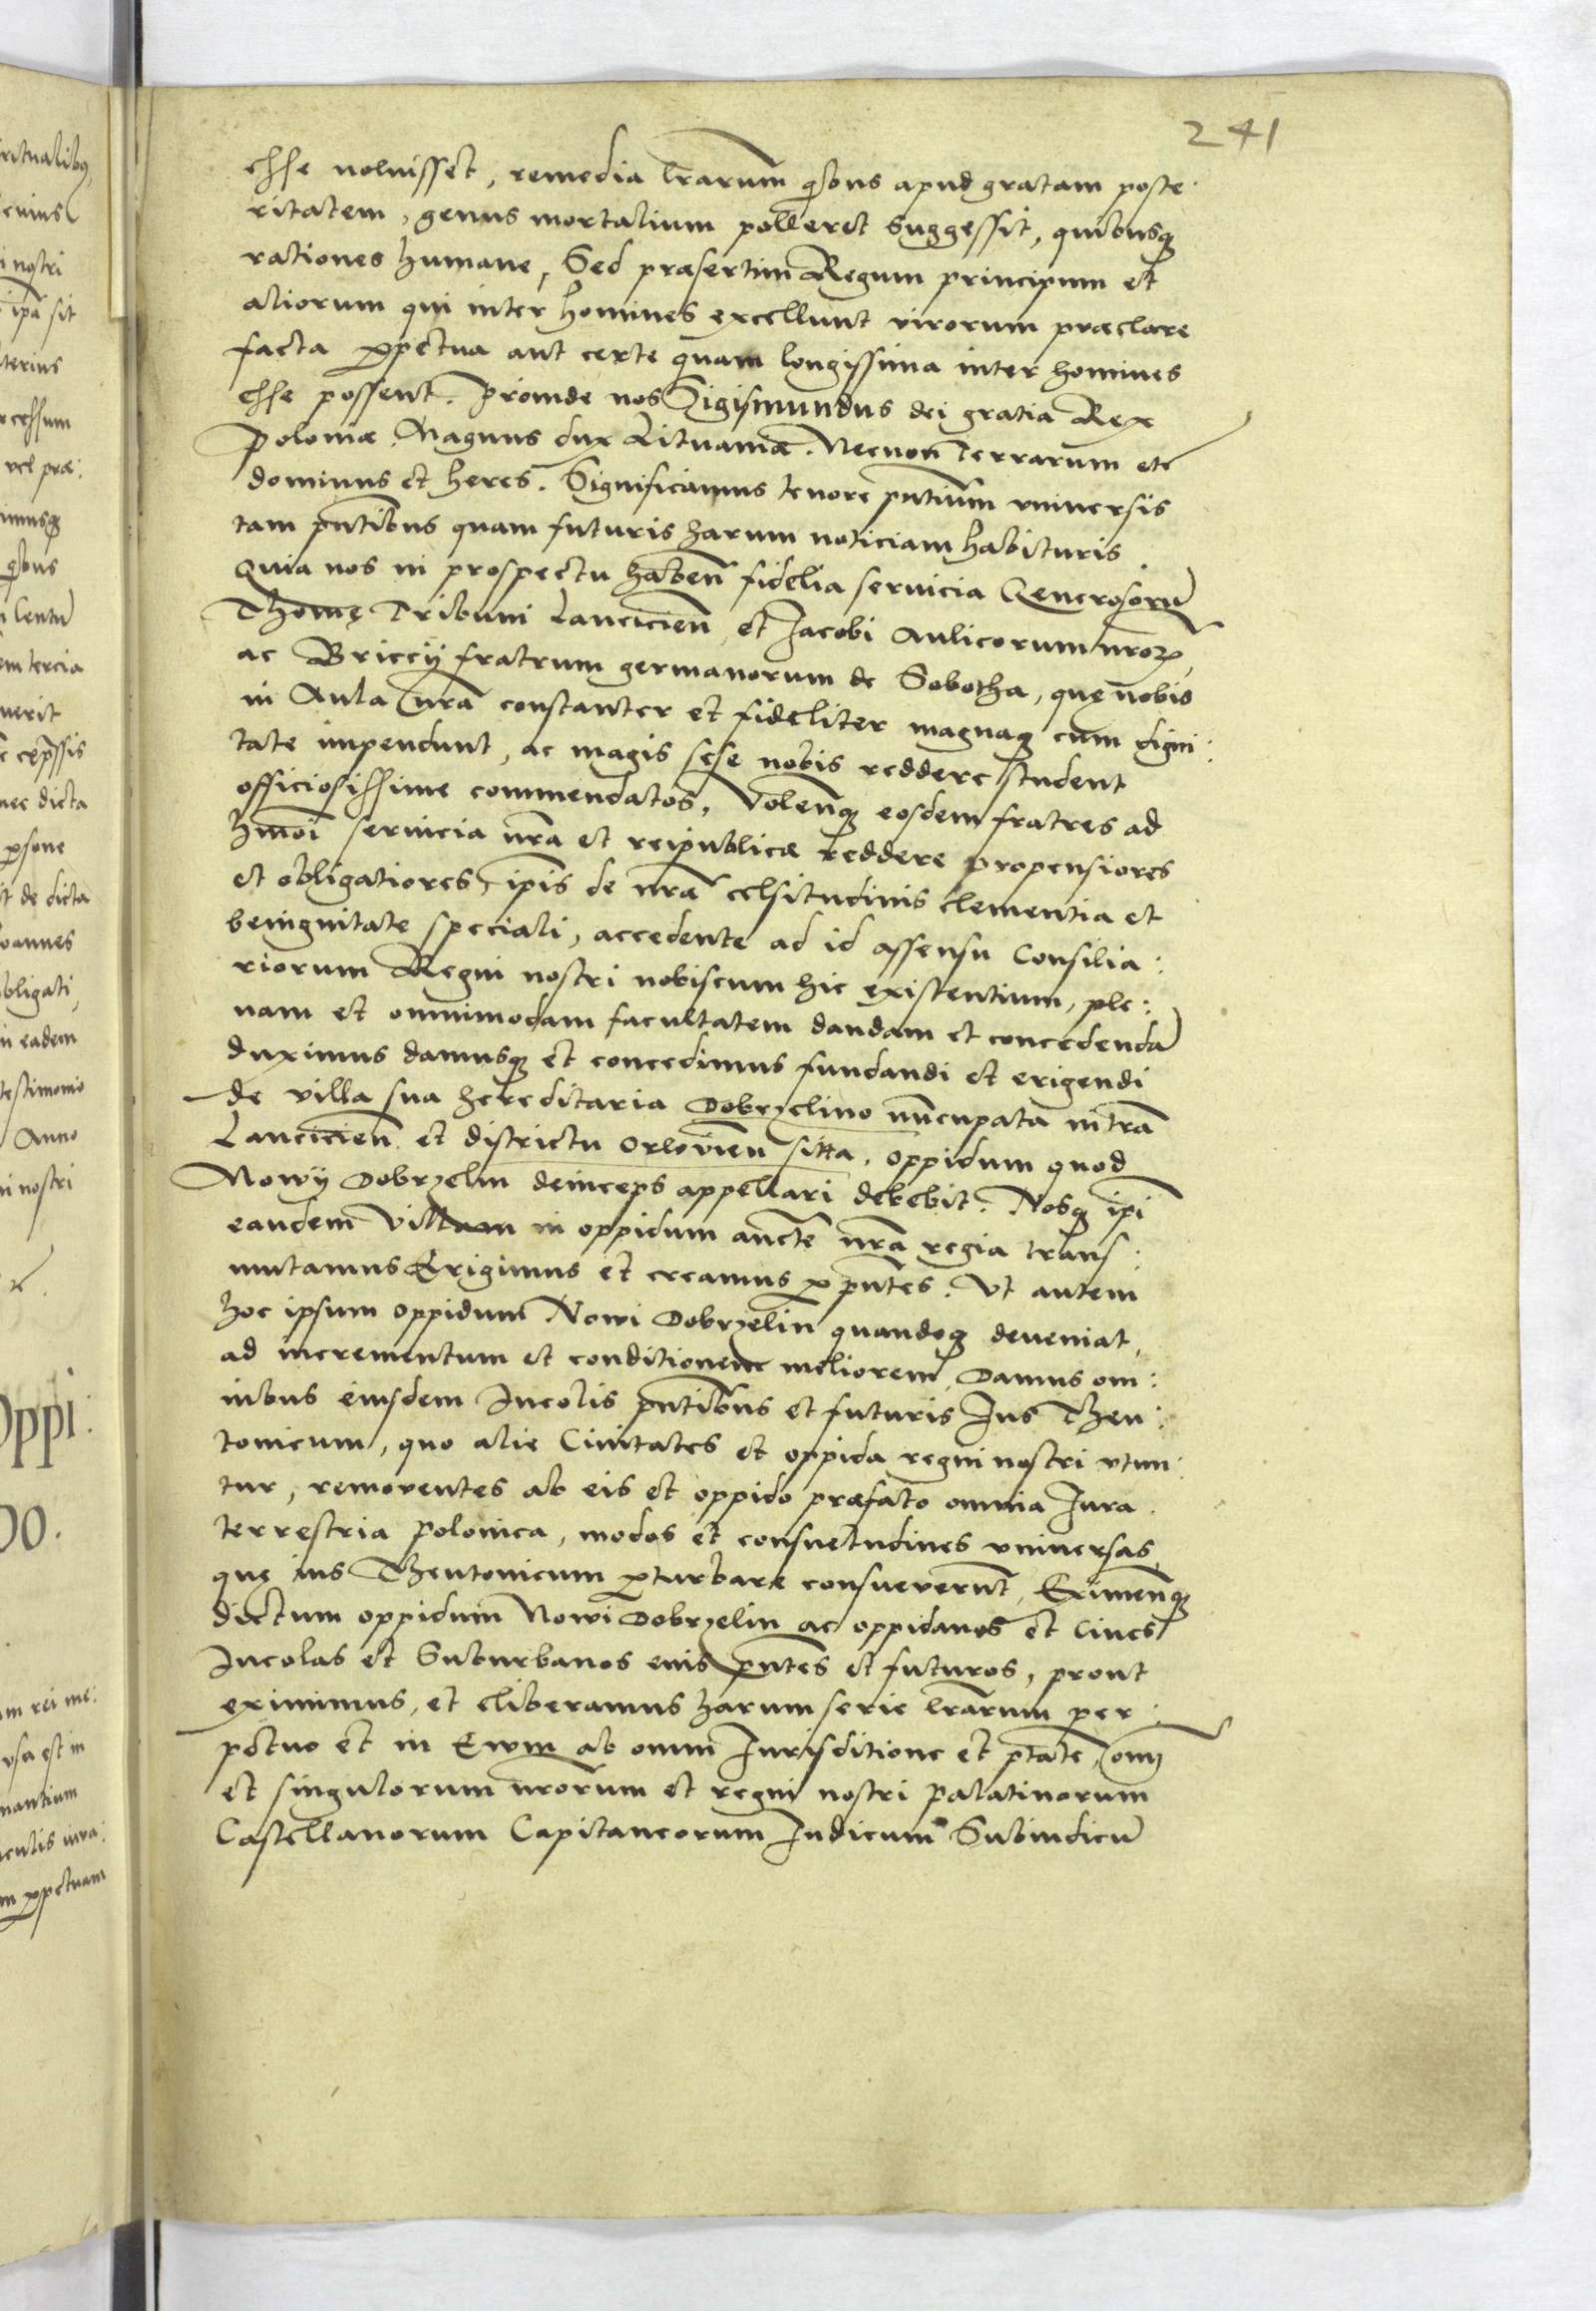 241
esse noluisset, remedia lrarum qibus apud gratam poste:
ritatem, genus mortalium polleret suggessit, quibusq
rationes humane, Sed præsertim Regum principum et
aliorum qui inter homines excellunt virorum præclare
facta ppetua aut certe quam longissima inter homines
esse possent. Proinde nos Sigismundus dei gratia Rex
Poloniæ. Magnus dux Lituaniæ. Necnon terrarum etc
dominus et heres. Significamus tenore pntium vniuersis
tam pntibus quam futuris harum noticiam habituris
Quia nos in prospectu haben fidelia seruicia Generosoru
Thomę Tribuni Lancicien et Jacobi Aulicorum nror,
ac Briccij fratrum germanorum de Sobotha, quę nobis
in Aula nra constanter et fideliter magnaq cum digni:
tate impendunt, ac magis sese nobis reddere student
officiosissime commendatos, Volenq eosdem fratres ad
hmoi seruicia nra et reipublicæ reddere propensiores
et obligatiores, ipis de nræ celsitudinis clementia et
benignitate speciali, accedente ad id assensu Consilia:
riorum Regni nostri nobiscum hic existentium, ple:
nam et omnimodam facultatem dandam et concedenda
duximus damusq et concedimus fundandi et erigendi
de villa sua hereditaria Dobrzelino nuncupata in tra
Lancicien et districtu Orlovien sitta, oppidum quod
Nowij Dobrzelin deinceps appellari debebit. Nosq ipi
eandem Villam in oppidum aucte nra regia trans:
mutamus Erigimus et creamus p pntes. Vt autem
hoc ipsum oppidum Nowi Dobrzelin quandoq deueniat,
ad incrementum et conditionem meliorem, Damus om:
nibus eiusdem Incolis pntibus et futuris Jus Theu:
tonicum, quo alie Ciuitates et oppida regni nostri vtun:
tur, remouentes ab eis et oppido præfato omnia Jura
terrestria Polonica, modos et consuetudines vniuersas,
quę ius Theutonicum pturbare consueuerunt, Eximenq
dictum oppidum Nowi Dobrzelin ac oppidanos et Ciues
Incolas et Suburbanos eius pntes et futuros, prout
eximimus, et eliberamus harum serie lrarum per:
petuo et in Ewm ab omni Jurisditione et ptate, om
et singulorum nrorum et regni nostri Palatinorum
Castellanorum Capitaneorum Judicum Subiudicu